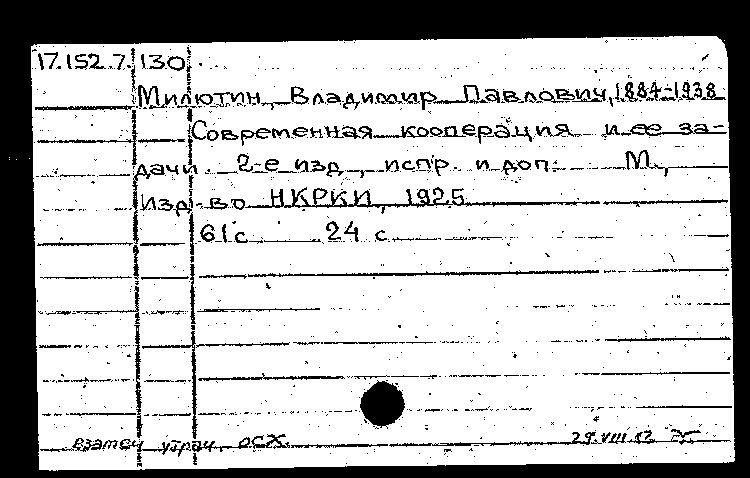 17.152.7.130
Милютин, Владимир Павлович, 1884-1938
Современная кооперация и ее за-
дачи. 2-е изд., испр. и доп. М.,
Изд-во НКРКИ, 1925
61 с. 24 с.
взамен утрач. осх. 29.VIII.